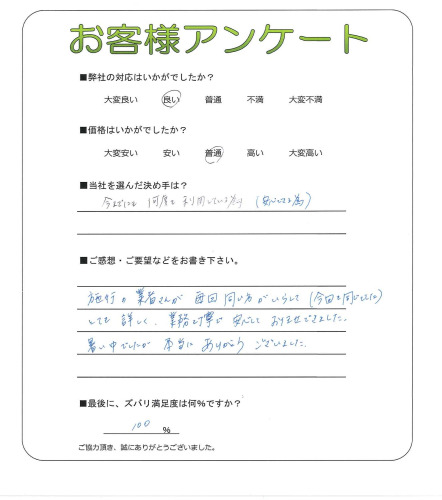 お客様アンケート
■弊社の対応はいかがでしたか？
大変良い 良い 普通 不満 大変不満
■価格はいかがでしたか？
大変安い 安い 普通 高い 大変高い
■当社を選んだ決め手は？
今までにも 何度も 利用している為 (安心できる為)
■ご感想・ご要望などをお書き下さい。
施行の業者さんが 毎回同じ方がいらして (今回も同じでした)
とても 詳しく、業務も丁寧で 安心して おまかせできました。
暑い中でしたが 本当に ありがとう ございました。
■最後に、ズバリ満足度は何％ですか？
100 %
ご協力頂き、誠にありがとうございました。